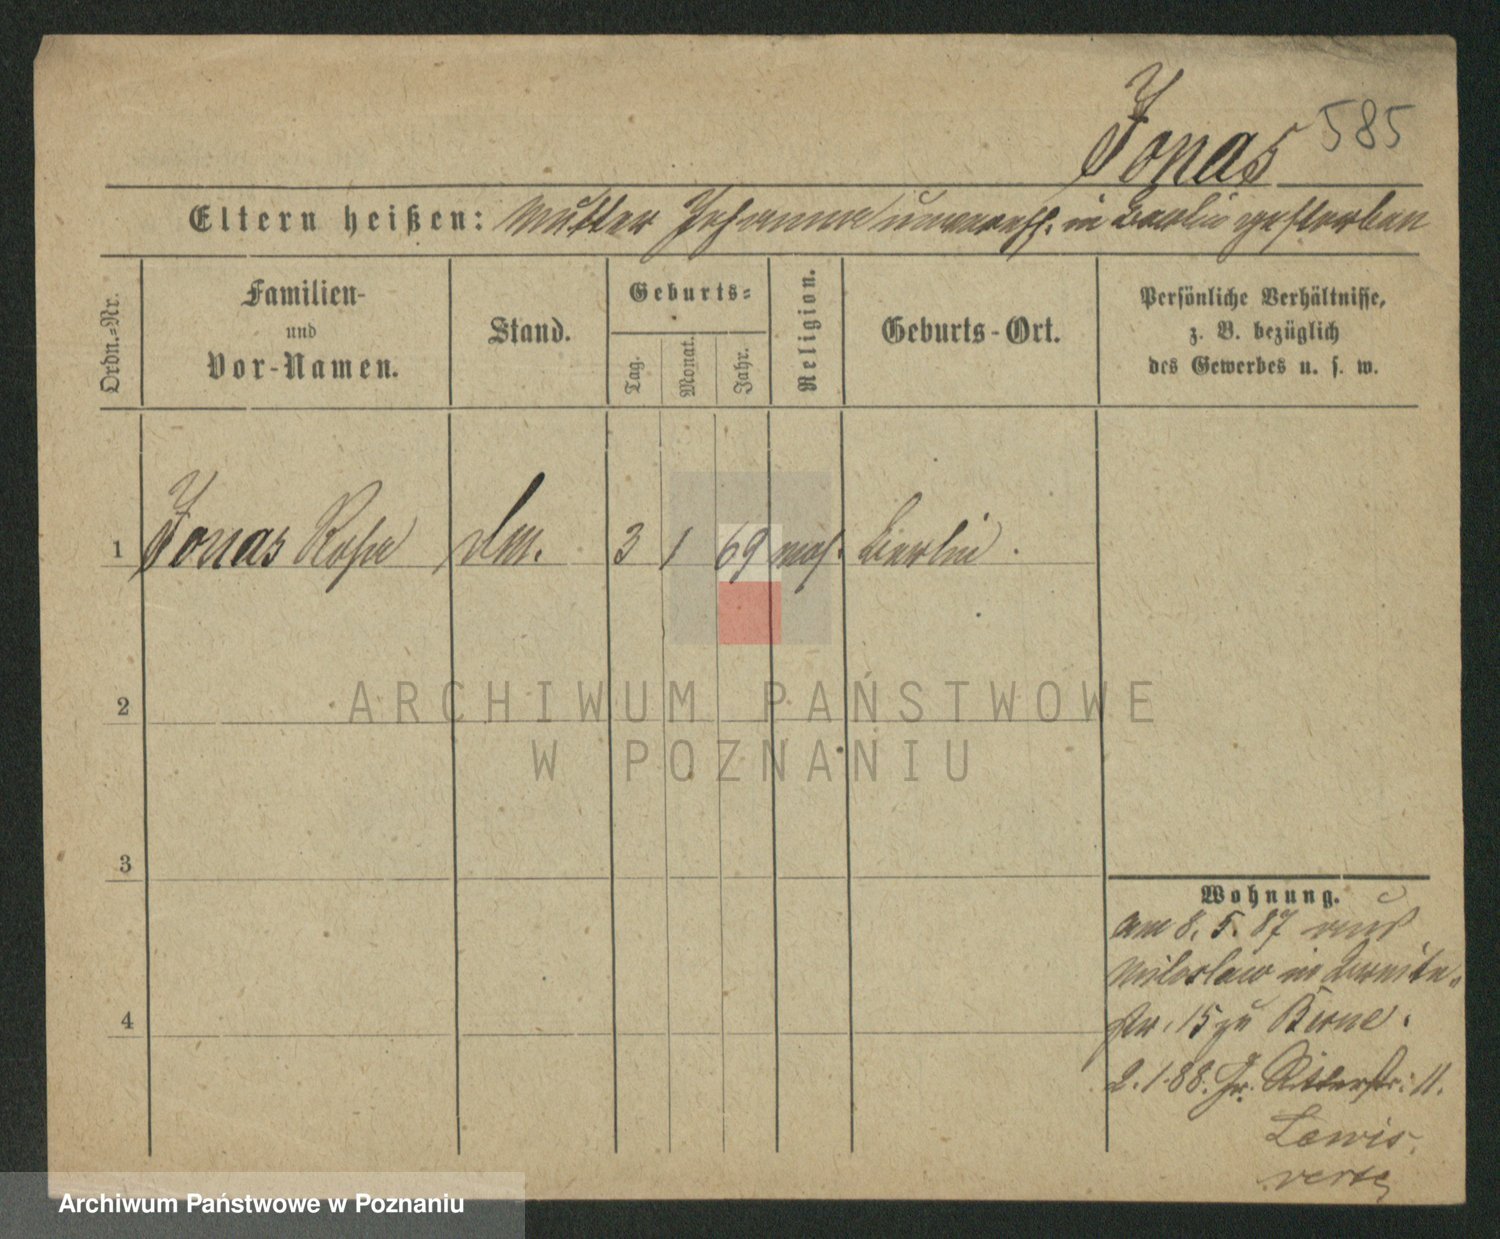 Jonas 585
Eltern heißen: Mutter Johanna unvereh. in Berlin gestorben
Ordn.-Nr.
Familien- und Vor-Namen.
Stand.
Geburts-
Tag.
Monat.
Jahr.
Religion.
Geburts-Ort.
Persönliche Verhältnisse,
z. B. bezüglich
des Gewerbes u. s. w.
1 Jonas Rosa 3 1 69 mos. Berlin.
2
3
4
Wohnung.
am 8. 5. 87 aus
Miloslaw in Breite-
str. 15 zu Birne.
2. 1. 88. Gr. Ritterstr. 11.
Lewis.
verte
ARCHIWUM PAŃSTWOWE
W POZNANIU
Archiwum Państwowe w Poznaniu